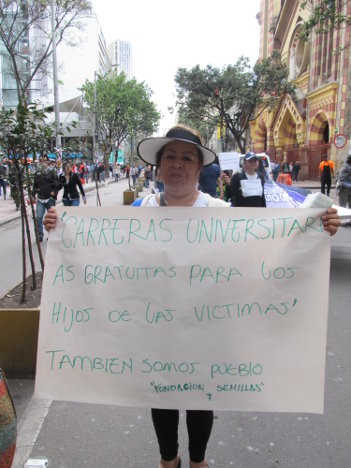 "CARRERAS UNIVERSITARI
AS GRATUITAS PARA LOS
HIJOS DE LAS VICTIMAS"
TAMBIEN SOMOS PUEBLO
"FUNDACION SEMILLAS"
7